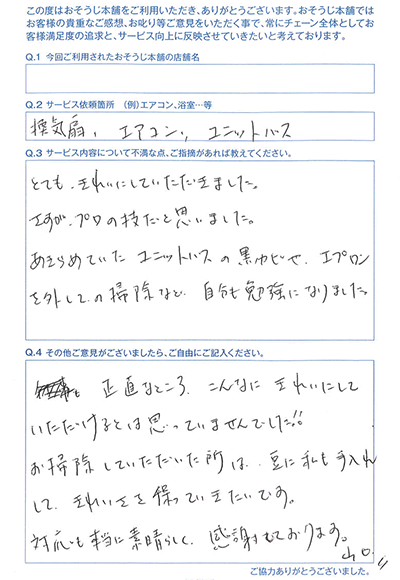 この度はおそうじ本舗をご利用いただき、ありがとうございます。おそうじ本舗では
お客様の貴重なご感想、お叱り等ご意見をいただく事で、常にチェーン全体としてお
客様満足度の追求と、サービス向上に反映させていきたいと考えております。
Q.1 今回ご利用されたおそうじ本舗の店舗名
Q.2 サービス依頼箇所 (例)エアコン、浴室…等
換気扇、エアコン、ユニットバス
Q.3 サービス内容について不満な点、ご指摘があれば教えてください。
とても、きれいにしていただきました。
さすが、プロの技だと思いました。
あきらめていた ユニットバスの黒カビや、エプロン
を外しての掃除など、自分も勉強になりました
Q.4 その他ご意見がございましたら、ご自由にご記入ください。
正直なところ、こんなに きれいにして
いただけるとは思っていませんでした!!
お掃除していただいた所は、豆に私も手入れ
して、きれいさを保っていきたいです。
対応も本当に素晴らしく、感謝しております。
ご協力ありがとうございました。